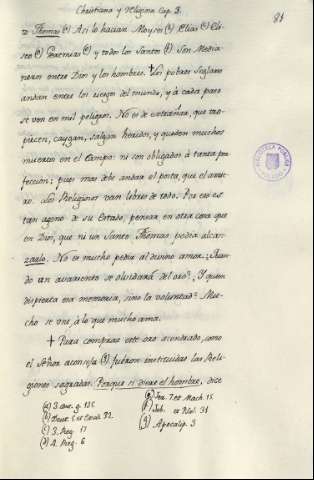 Christiana y Religiosa Cap. 3.
81
Thomas (a) Asi lo hacian Moyses (b) Elias (c) Eli-
seo (d) Geremias (e) y todos los Santos (f) Son Media-
neros entre Dios y los hombres. + Los pobres Seglares
andan entre los riesgos del mundo, y à cada paso
se ven en mil peligros. No es de extrañar, que tro-
piecen, caygan, salgan heridos, y queden muchos
muertos en el Campo: ni son obligados à tanta per-
feccion; pues mas debe andar el posta, que el arrie-
ro. Los Religiosos van libres de todo. Por eso es
tan ageno de su Estado pensar en otra cosa que
en Dios, que ni un Santo Thomas podia alcan-
zarlo. No es mucho pedia al divino amor.
do un avariento se olvidará del oro? ¿Y quien
dispierta esa memoria, sino la voluntad? Mu-
cho se une, à lo que mucho ama.
+ Para comprar este oro acendrado, como
el Señor aconseja (g) fueron instituidas las Reli-
giones sagradas. Porque si dives el hombre, dice
(a) 3. cont. g. 135
(b) Deut. 5 et Exod. 32
(c) 3. Reg. 17
(d) 4. Reg. 6
(e) Jer. 7. et Mach. 15
(f) Job. et Psal. 31
(g) Apocalip. 3